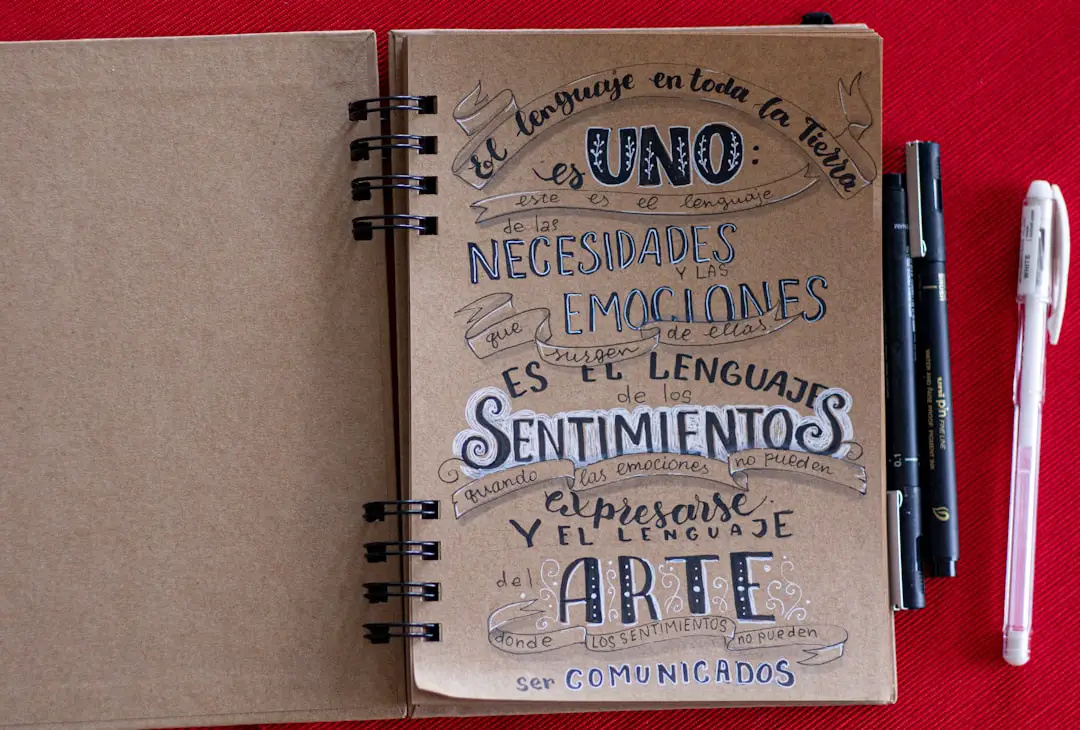 El lenguaje en toda la Tierra
es UNO:
este es el lenguaje
de las
NECESIDADES
Y LAS
EMOCIONES
que surgen de ellas.
ES EL LENGUAJE
de los
SENTIMIENTOS
quando las emociones no pueden
expresarse.
Y EL LENGUAJE
del ARTE
donde LOS SENTIMIENTOS no pueden
ser COMUNICADOS
uni pin FINE LINE
WATER AND FADE PROOF PIGMENT INK
0.1
WHITE